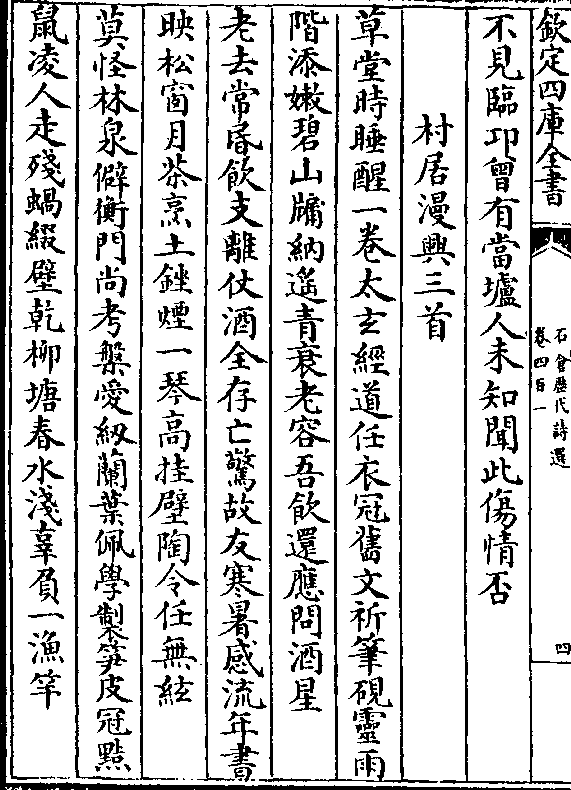 欽定四庫全書
石倉歷代詩選
卷四百一
四
不見臨邛曾有當壚人未知聞此傷情否
村居漫興三首
草堂時睡醒一卷太玄經道任衣冠舊文祈筆硯靈雨
階添嫩碧山牖納遙青衰老容吾飲還應問酒星
老去常昏飲支離仗酒全存亡驚故友寒暑感流年書
映松窗月茶烹土銼煙一琴高挂壁陶令任無絃
莫怪林泉僻衡門尚考槃愛紉蘭葉佩學製笋皮冠黠
鼠凌人走殘蝸綴壁乾柳塘春水淺辜負一漁竿